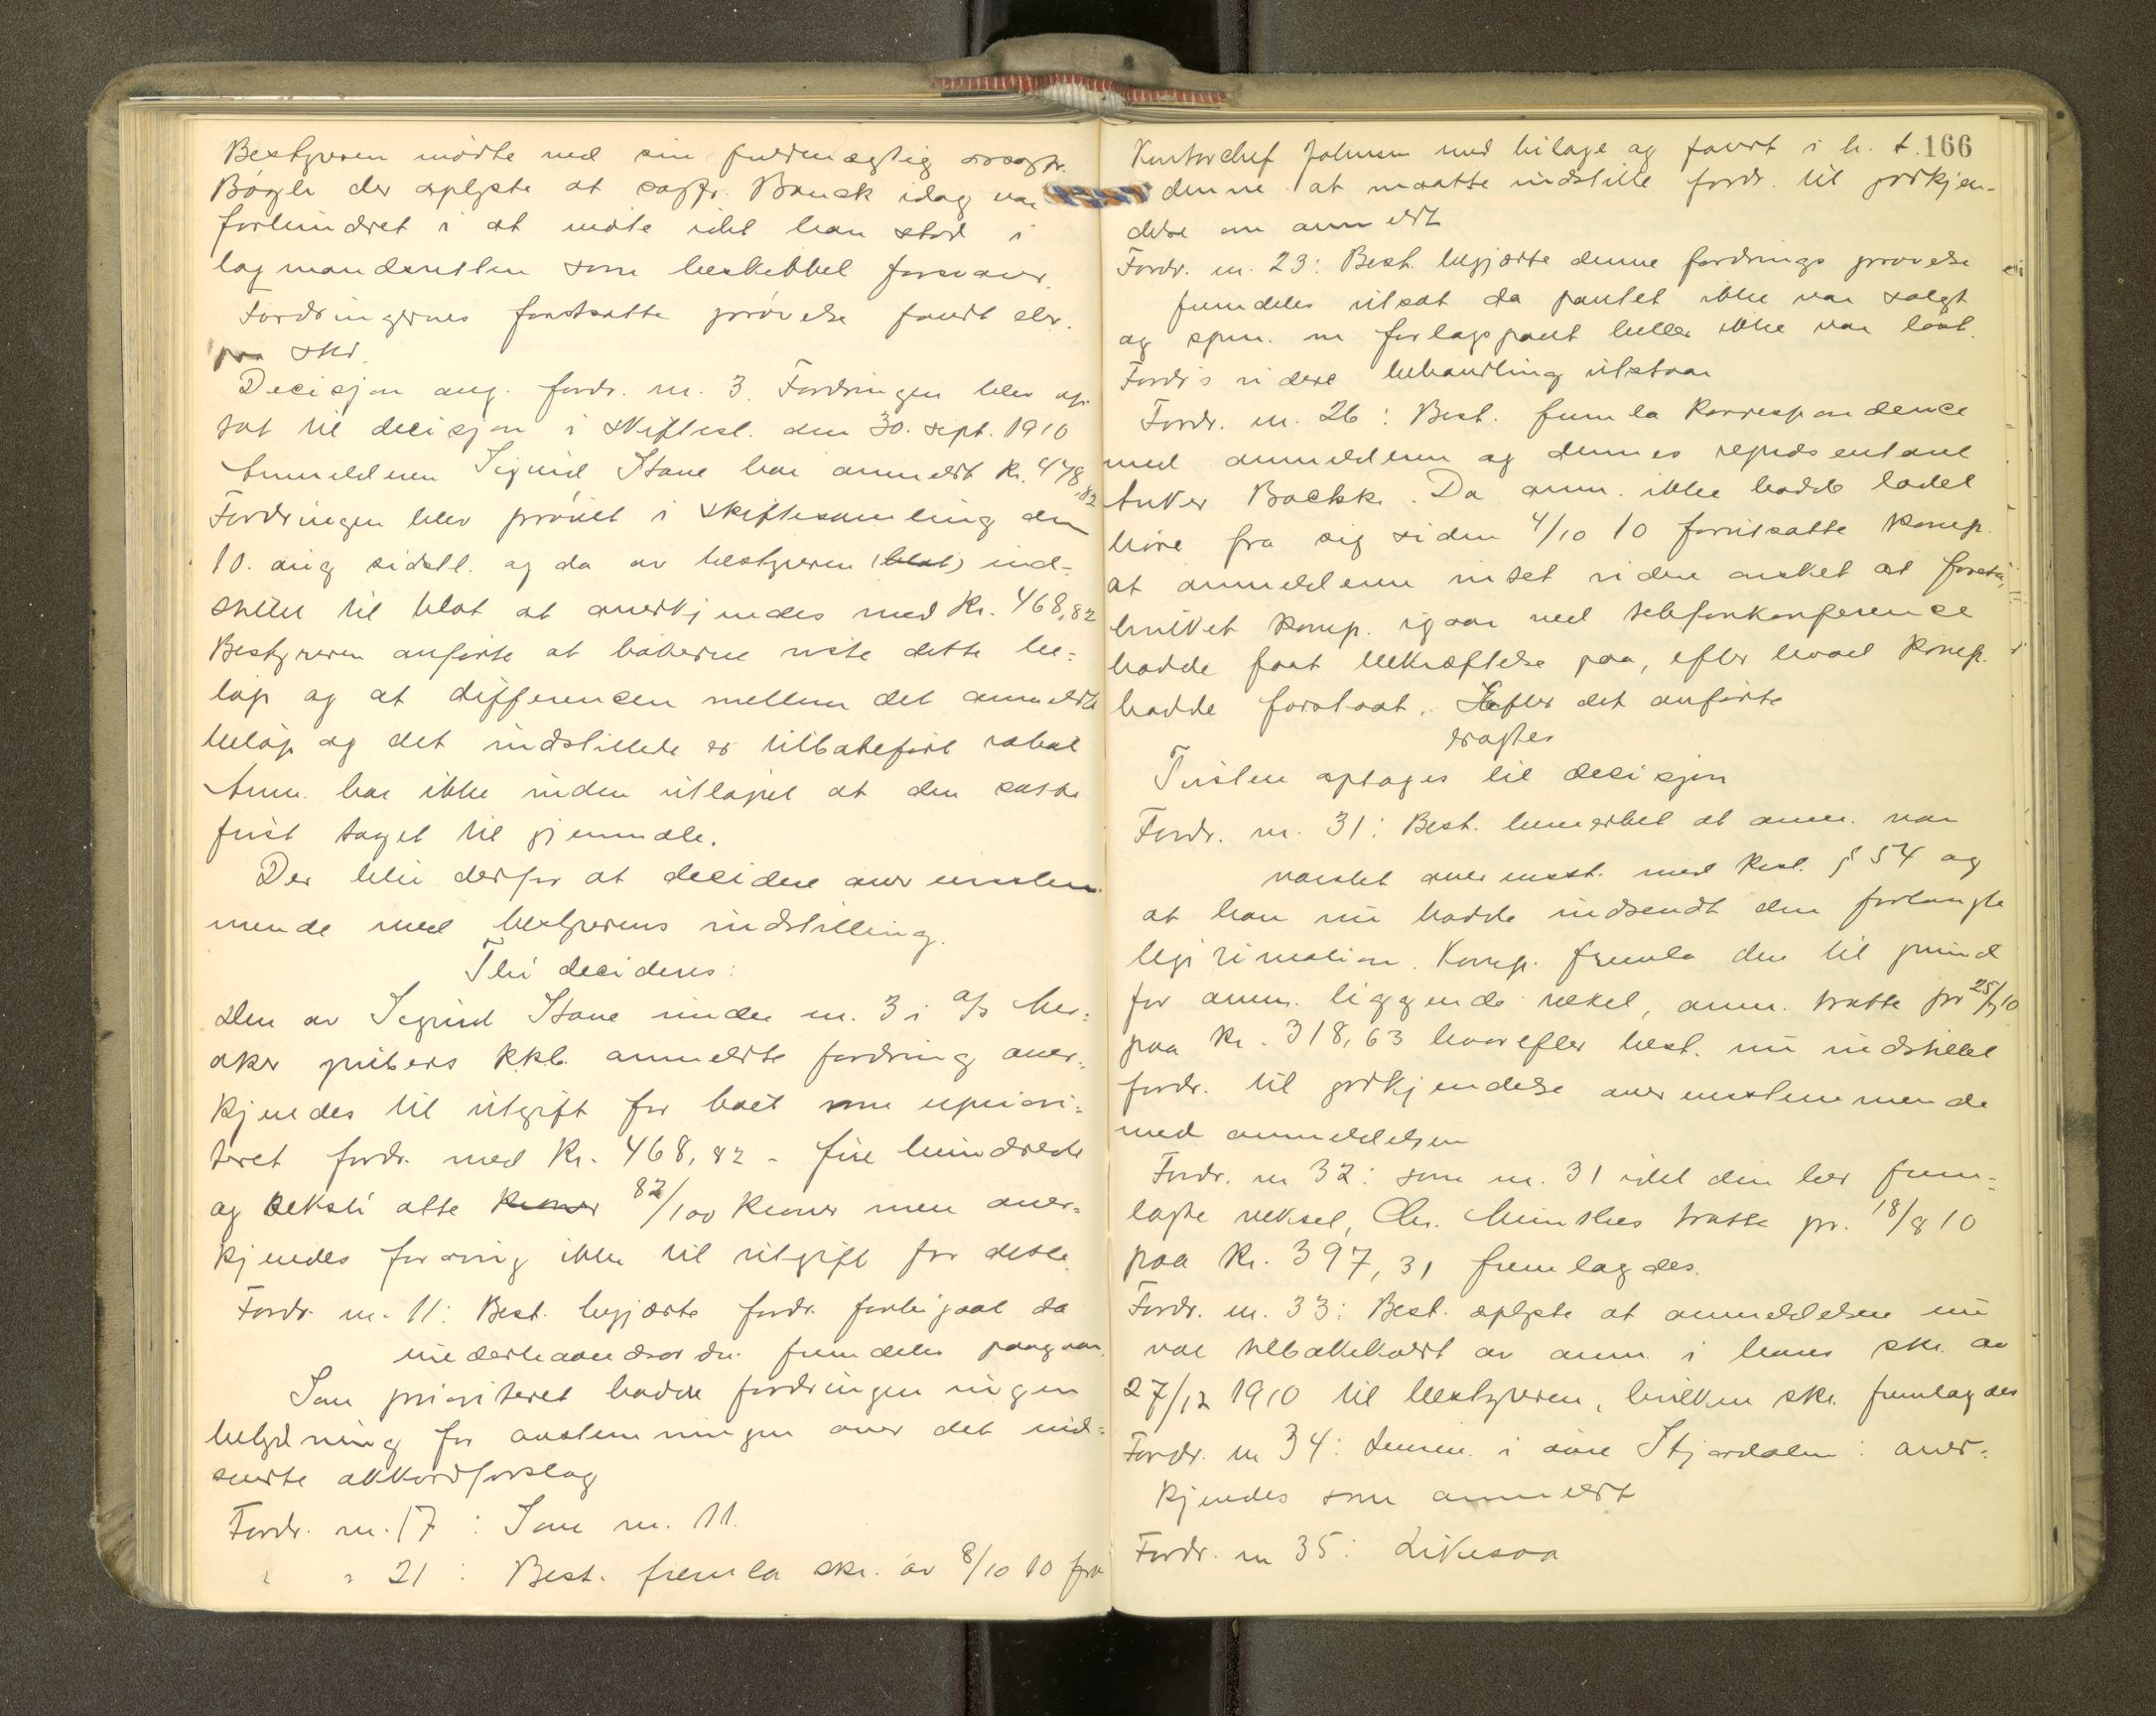 Bestyreren mødte ved sin fuldmægtig
Bøgh der oplyste at sagf. Bauck idag var
forhindret i at møte idet han stod i
lagmandsretten som beskikket forsvarer.
Fordringernes fortsatte prøvelse
paa skr.
Decisjon ang. fordr. nr. 3. Fordringen blev op-
tat til decisjon i skiftesl. den 30. sept. 1910
Anmelderen Sigurd Stave har anmeldt kr. 478,82
Fordringen blev prøvet i skiftesamling den
10. aug sidstl. og da av bestyreren (blot) ind-
stillet til blot at anerkjendes med kr. 468,82
Bestyreren anførte at bøkerne viste dette be-
løp og at differencen mellem det anmeldte
beløp og det indstillede er tilbakeført rabat
Anm. har ikke inden utløpet at den satte
frist taget til gjenmæle.
Der blir derfor at decidere overensstem-
mende med bestyrerens indstilling.
Thi decideres:
Den av Sigurd Stave under nr. 3 i A/S Mer-
aker kkb. anmeldte fordring aner-
kjendes til utgift for boet som upriori-
teret fordr. med kr. 468,82 - fire hundrede
og seksti otte kroner 82/100 kroner men aner-
kjendes forøvrig ikke til utgift for dette.
Fordr. nr. 11: Best. begjærte fordr. forbigaat da
underhaand fremdeles paagaar.
Som prioriteret hadde fordringen ingen
betydning for avstemningen over det ind-
sendte akkordforslag
Fordr. nr. 17 : Som nr. 11.
" " 21 : Best. fremla skr. av 8/10 10 fra
166
Kontorchef Johnsen med bilage og i h. t.
denne at maatte indstille fordr til godkjen-
delse om anmeldt
Fordr. nr. 23: Best. begjærte denne fordrings prøvelse
fremdeles utsat da pantet ikke var solgt
og spm. om forlagspant heller ikke var løst.
Fordr's videre behandling utstaar
Fordr. nr. 26: Best. fremla korrespondence
med anmelderen og dennes repræsentant
Anker Bachke. Da anm. ikke hadde ladet
høre fra sig siden 4/10 10 forutsatte komp.
at anmelderen intet videre ønsket at foreta,
hvilket komp. igaar ved telefonkonference
hadde faat bekræftelse paa, efter hvad komp.
hadde forstaat. Efter det anførte
Tvisten optages til decisjon
Fordr. nr. 31: Best. bemerket at anm. var
varslet overensst. med kksl. § 54 og
at han nu hadde indsendt den forlangte
legitimation. Komp. fremla den til grund
for anm. liggende veksel, anm. tratte pr 25/7 10
paa kr. 318,63 hvorefter best. nu indstillet
fordr. til godkjendelse overensstemmende
med anmeldelsen
Fordr. nr 32: som nr. 31 idet den her frem-
lagte veksel, Chr. tratte pr. 18/8 10
paa kr. 397,31 fremlagdes.
Fordr. nr. 33: Best. oplyste at anmeldelsen nu
var tilbakekaldt av anm. i hans skr. av
27/12 1910 til bestyreren, hvilken skr. fremlagdes
Fordr. nr 34: i øvre Stjørdalen: aner-
kjendes som anmeldt
Fordr. nr 35: Likesaa